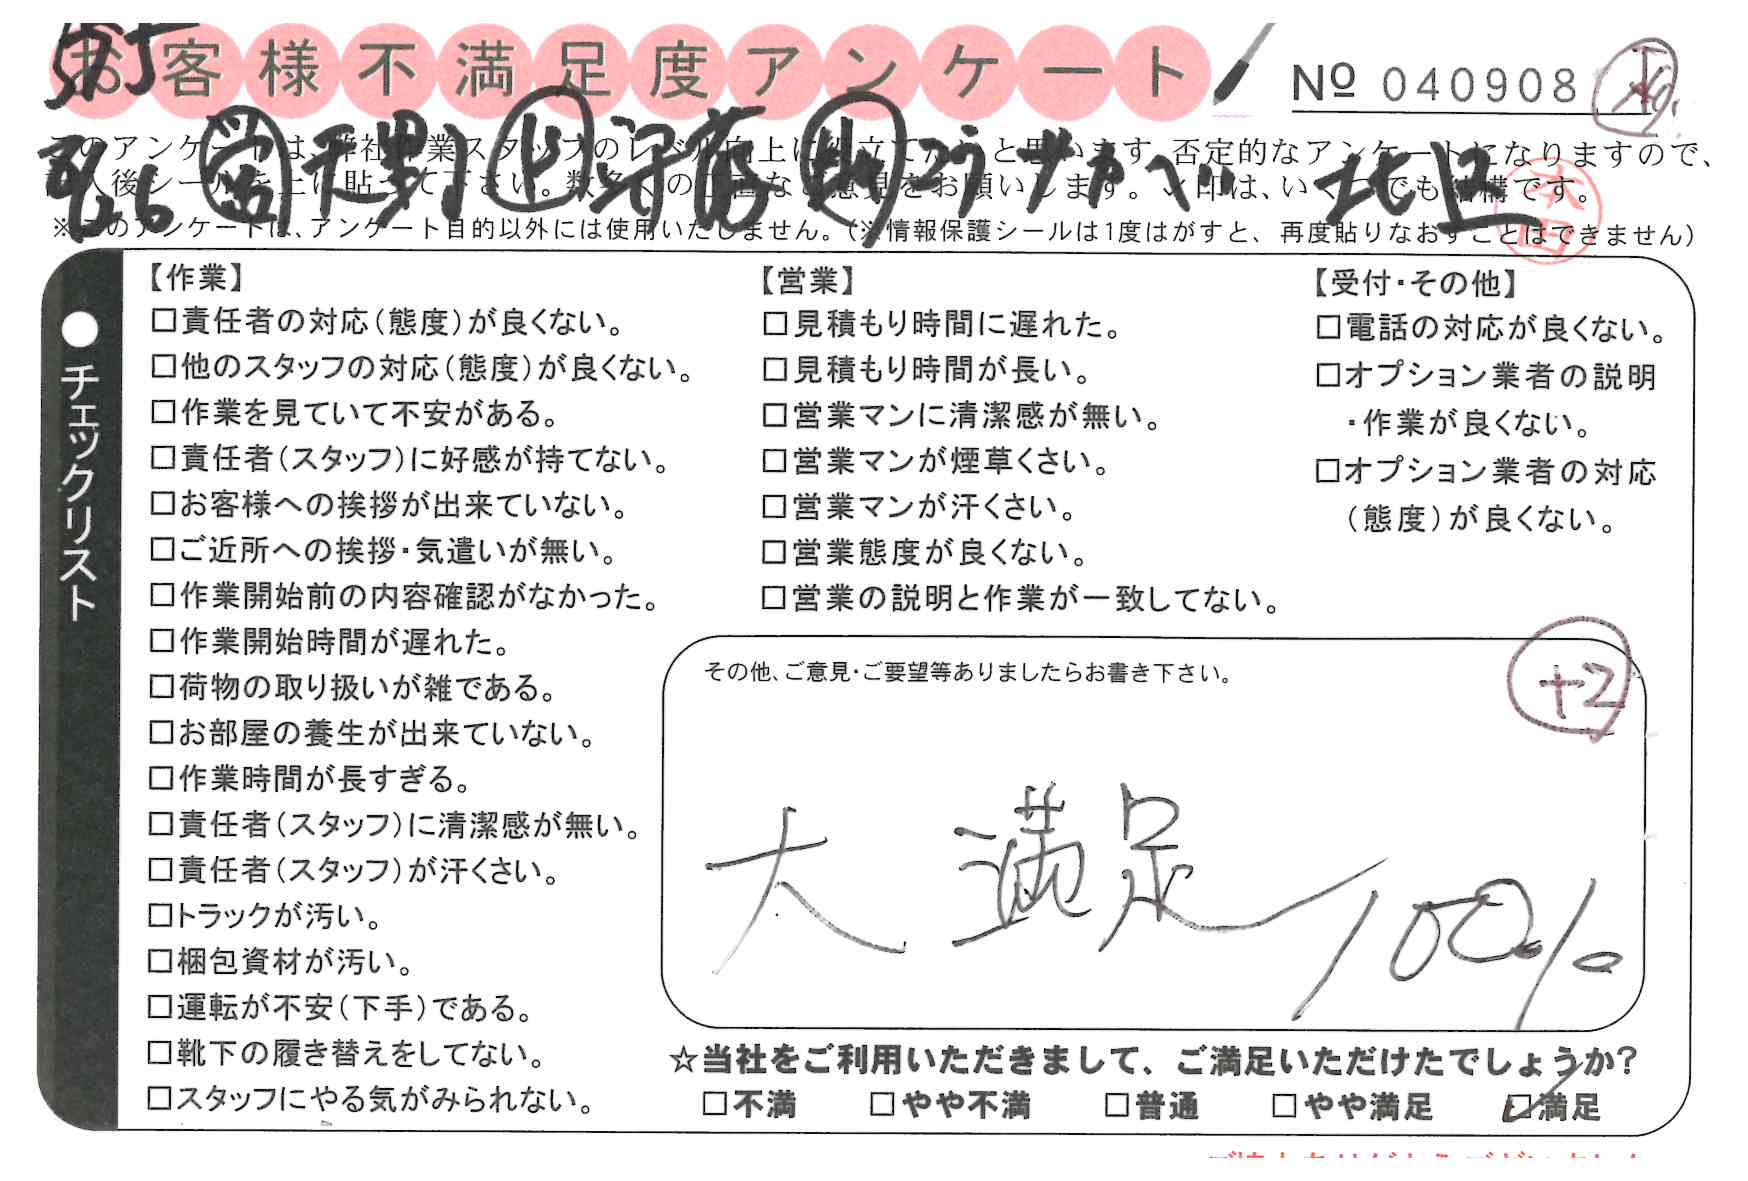 お客様不満足度アンケート
№ 040908
このアンケートは、弊社作業スタッフのレベル向上に役立てたいと思います。否定的なアンケートになりますので、
記入後シールを上に貼って下さい。数多くのご正直なご意見をお願いします。レ印は、いくつでも結構です。
※このアンケートは、アンケート目的以外には使用いたしません。(※情報保護シールは1度はがすと、再度貼りなおすことはできません)
●チェックリスト
【作業】
□責任者の対応(態度)が良くない。
□他のスタッフの対応(態度)が良くない。
□作業を見ていて不安がある。
□責任者(スタッフ)に好感が持てない。
□お客様への挨拶が出来ていない。
□ご近所への挨拶・気遣いが無い。
□作業開始前の内容確認がなかった。
□作業開始時間が遅れた。
□荷物の取り扱いが雑である。
□お部屋の養生が出来ていない。
□作業時間が長すぎる。
□責任者(スタッフ)に清潔感が無い。
□責任者(スタッフ)が汗くさい。
□トラックが汚い。
□梱包資材が汚い。
□運転が不安(下手)である。
□靴下の履き替えをしてない。
□スタッフにやる気がみられない。
【営業】
□見積もり時間に遅れた。
□見積もり時間が長い。
□営業マンに清潔感が無い。
□営業マンが煙草くさい。
□営業マンが汗くさい。
□営業態度が良くない。
□営業の説明と作業が一致してない。
【受付・その他】
□電話の対応が良くない。
□オプション業者の説明
・作業が良くない。
□オプション業者の対応
(態度)が良くない。
その他、ご意見・ご要望等ありましたらお書き下さい。
+2
大満足 100%
☆当社をご利用いただきまして、ご満足いただけたでしょうか?
□不満 □やや不満 □普通 □やや満足 ☑満足